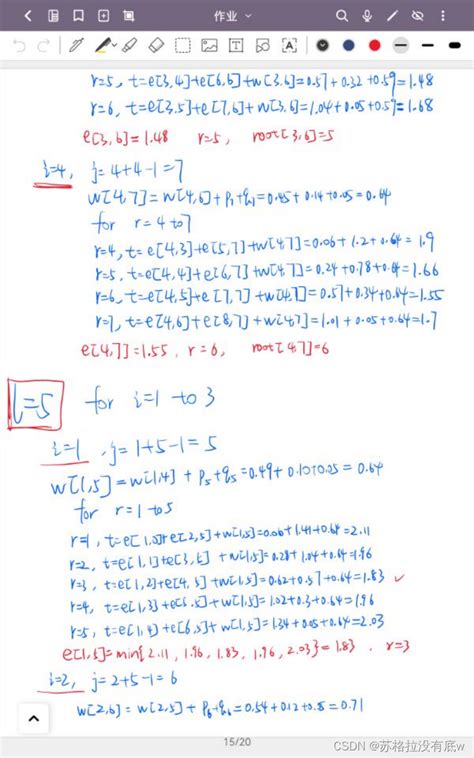 作业
r=5, t=e[3,4]+e[6,6]+w[3,6]=0.57+0.32+0.59=1.48
r=6, t=e[3,5]+e[7,6]+w[3,6]=1.04+0.05+0.59=1.68
e[3,6]=1.48 r=5, root[3,6]=5
i=4, j=4+4-1=7
w[4,7]=w[4,6]+p₇+q₇=0.45+0.14+0.05=0.64
for r=4 to 7
r=4, t=e[4,3]+e[5,7]+w[4,7]=0.06+1.2+0.64=1.9
r=5, t=e[4,4]+e[6,7]+w[4,7]=0.24+0.78+0.64=1.66
r=6, t=e[4,5]+e[7,7]+w[4,7]=0.57+0.34+0.64=1.55
r=7, t=e[4,6]+e[8,7]+w[4,7]=1.01+0.05+0.64=1.7
e[4,7]=1.55, r=6, root[4,7]=6
l=5 for i=1 to 3
i=1, j=1+5-1=5
w[1,5]=w[1,4]+p₅+q₅=0.49+0.10+0.05=0.64
for r=1 to 5
r=1, t=e[1,0]+e[2,5]+w[1,5]=0.06+1.41+0.64=2.11
r=2, t=e[1,1]+e[3,5]+w[1,5]=0.28+1.04+0.64=1.96
r=3, t=e[1,2]+e[4,5]+w[1,5]=0.62+0.57+0.64=1.83 ✓
r=4, t=e[1,3]+e[5,5]+w[1,5]=1.02+0.3+0.64=1.96
r=5, t=e[1,4]+e[6,5]+w[1,5]=1.34+0.05+0.64=2.03
e[1,5]=min{2.11, 1.96, 1.83, 1.96, 2.03}=1.83, r=3
i=2, j=2+5-1=6
w[2,6]=w[2,5]+p₆+q₆=0.54+0.12+0.5=0.71
15/20
CSDN @苏格拉没有底w